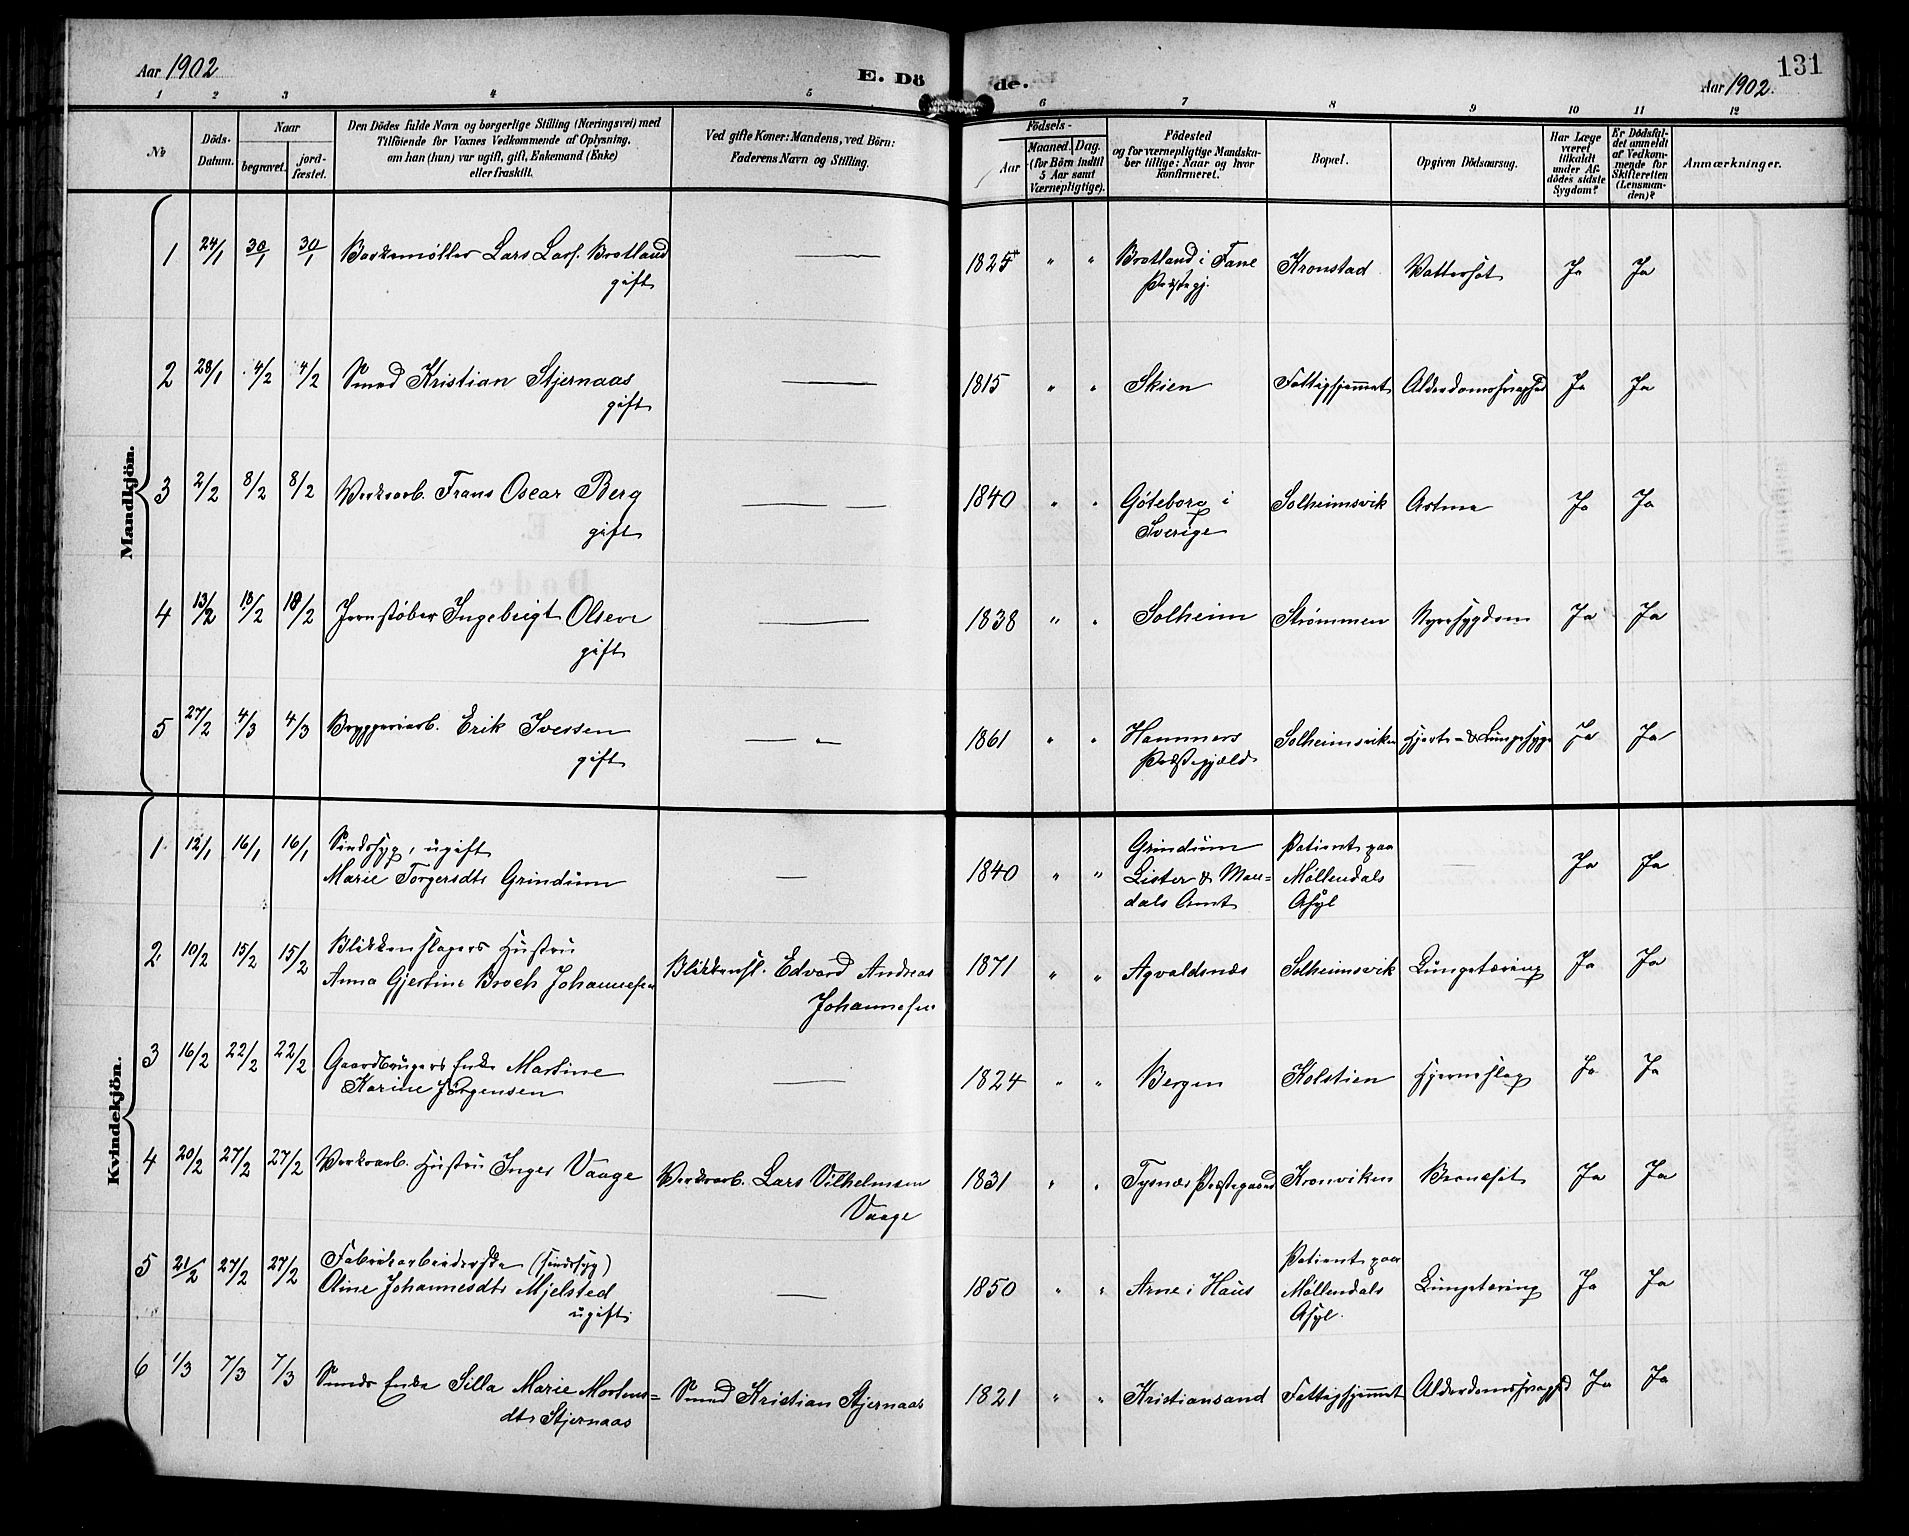 Aar 1902
E. Dö
de.
131
Aar 1902.
1 2 3 4 5 6 7 8 9 10 11 12
No
Döds-Datum.
Naar
begravet.
jord-fæstet.
Den Dödes fulde Navn og borgerlige Stilling (Næringsvei) med
Tilföiende for Voxnes Vedkommende af Oplysning,
om han (hun) var ugift, gift, Enkemand (Enke)
eller fraskilt.
Ved gifte Koner: Mandens, ved Börn:
Faderens Navn og Stilling.
Födsels-
Aar
Maaned. Dag.
(for Börn indtil
5 Aar samt
Værnepligtige).
Födested
og for værnepligtige Mandska-
ber tillige: Naar og hvor
konfirmeret.
Bopæl.
Opgiven Dödsaarsag.
Har Læge
været
tilkaldt
under Af-
dödes sidste
Sygdom?
Er Dödsfal-
det anmeldt
af Vedkom-
mende for
Skifteretten
(Lensman-
den)?
Anmærkninger.
Mandkjön.
1 24/1 30/1 30/1 Barkemøller Lars Lars. Bratland — 1825 " " Bratland i Fane Kronstad Vattersot Ja Ja
gift Præstegj.
2 28/1 4/2 4/2 Smed Kristian Stjernaas — 1815 " " Skien Fattighjemmet Alderdomssvaghed Ja Ja
gift
3 2/2 8/2 8/2 Verksarb. Frans Oscar Berg — 1840 " " Göteborg i Solheimsvik Astma Ja Ja
gift Sverige
4 13/2 18/2 18/2 Jernstøber Ingebrigt Olsen — 1838 " " Solheim Strømmen Nyresygdom Ja Ja
gift
5 27/2 4/3 4/3 Bryggeriarb. Erik Iversen — " — 1861 " " Hammers Solheimsviken Hjerte- & Lungesyge Ja Ja
gift Præstegjæld
Kvindekjön.
1. 12/1 16/1 16/1 Sindssyg, ugift Grindum Patient paa
Marie Torgersdtr Grindum — 1840 " " Lister & Man- Møllendals — Ja Ja
dals Amt Asyl
2. 10/2 15/2 15/2 Blikkenslagers Hustru
Anna Gjertine Broch Johannesen Blikkensl. Edvard Andreas 1871 " " Agvaldsnæs Solheimsvik Lungetæring Ja Ja
Johannesen
3 16/2 22/2 22/2 Gaardbrugers Enke Martine
Karine Jørgensen — 1824 " " Bergen Kolstien Hjerneslag Ja Ja
4 20/2 27/2 27/2 Verksarb. Hustru Inger Vaage Verksarb. Lars Vilhelmsen 1831 " " Tysnæs Præstegaard Kronviken Ja Ja
Vaage
5 21/2 27/2 27/2 Fabrikarbeiderske (sindssyg) Patient paa
Oline Johannesdtr Mjelsted — 1850 " " Arne i Haus Møllendals Lungetæring Ja Ja
ugift Asyl.
6 1/3 7/3 7/3 Smeds Enke Silla Marie Mortens= Smed Kristian Stjernaas 1821 " " Kristiansand Fattighjemmet Alderdomssvaghed Ja Ja
dtr Stjernaas